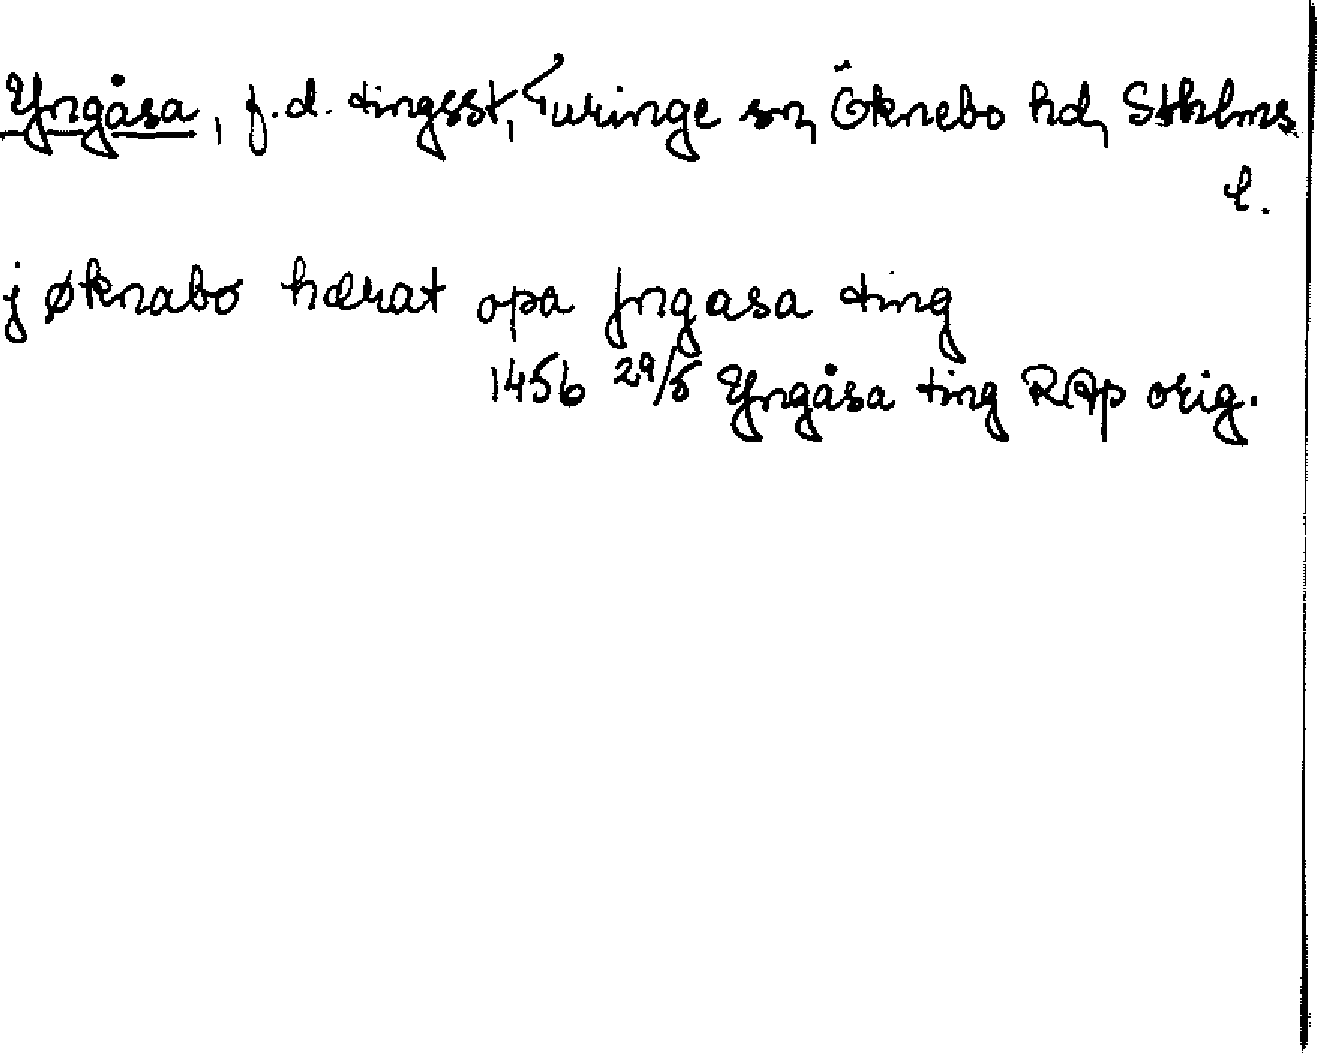 Yngåsa, f.d. tingsst, Turinge sn, Öknebo hd, Sthlms
l.
j øknabo hærat opa jngasa ting
1456 29/5 Yngåsa ting RAp orig.